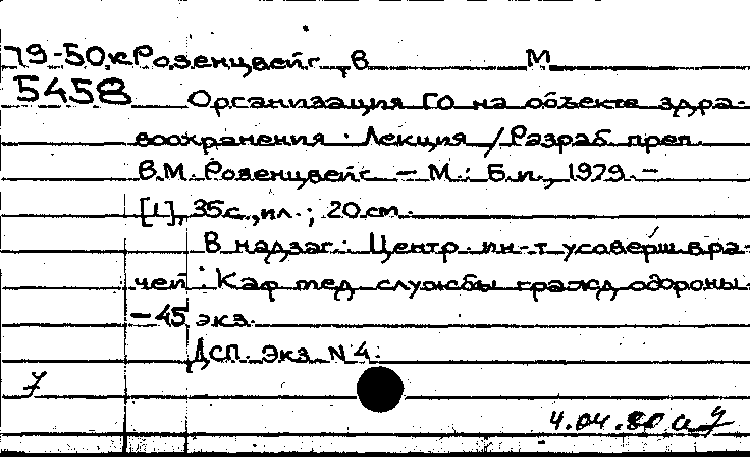 79-50к Розенцвейг, В М
5458 Организация ГО на объекте здра-
воохранения. Лекция / Разраб. преп.
В.М. Розенцвейг — М.: Б.и., 1979. —
[1], 35с., ил.; 20 см.
В надзаг.: Центр. ин-т усоверш. вра-
чей. Каф. мед. службы гражд. обороны.
— 45 экз.
ДСП. Экз. N 4.
7
4.04.80